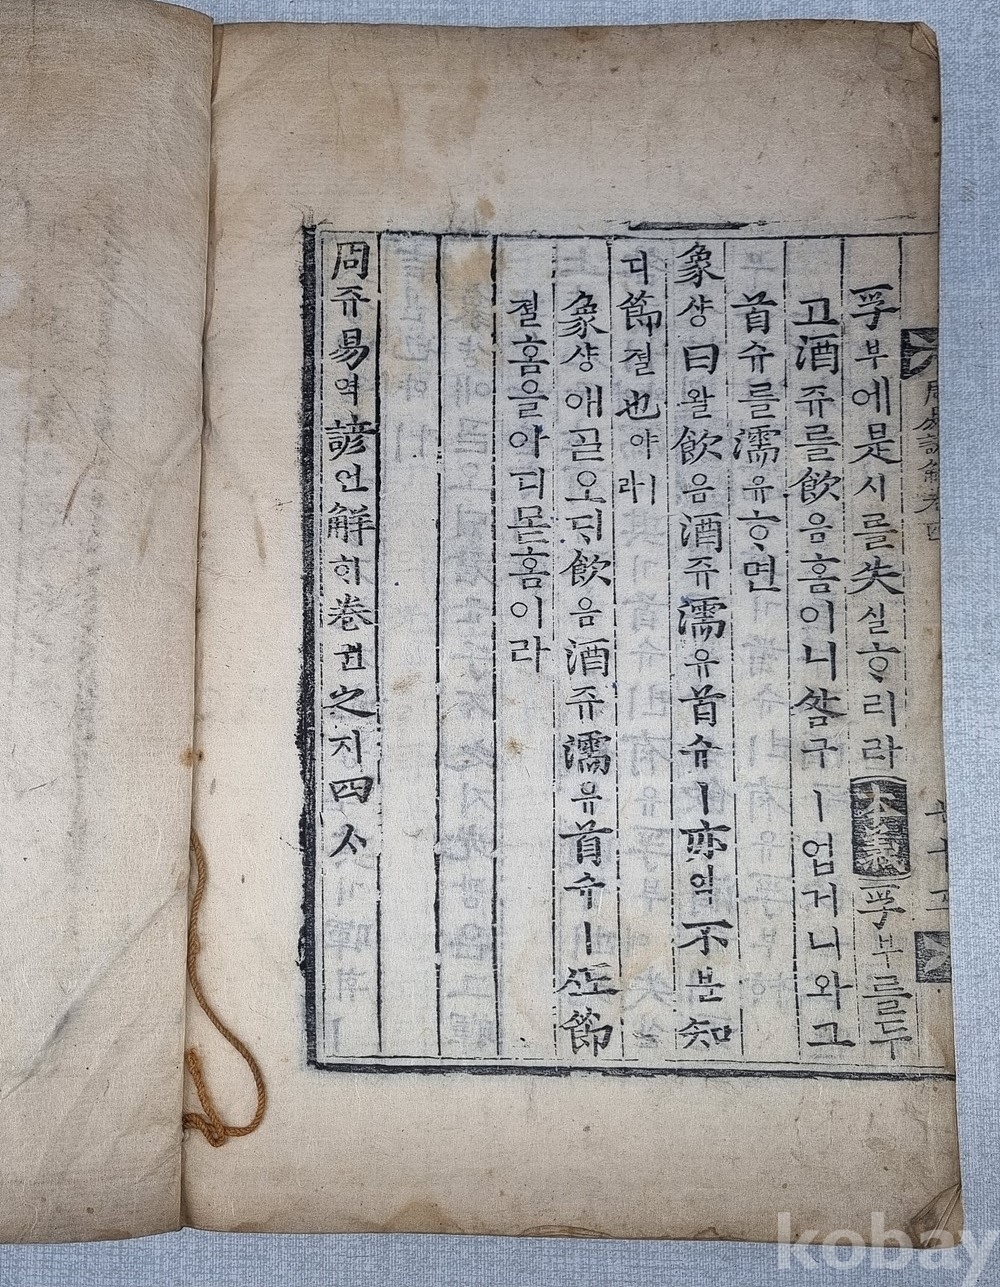 周易諺解卷四
孚부에是시를失실ᄒᆞ리라 本義 孚부를두
고酒쥬를飮음홈이니咎구ㅣ업거니와그
首슈를濡유ᄒᆞ면
象샹曰왈飮음酒쥬濡유首슈ㅣ亦역不분知
디節졀也야ㅣ라
象샹애ᄀᆞᆯ오ᄃᆡ飮음酒쥬濡유首슈ㅣ節
졀홈을아디몯홈이라
周쥬易역諺언解ᄒᆡ卷권之지四ᄉᆞ
kobay